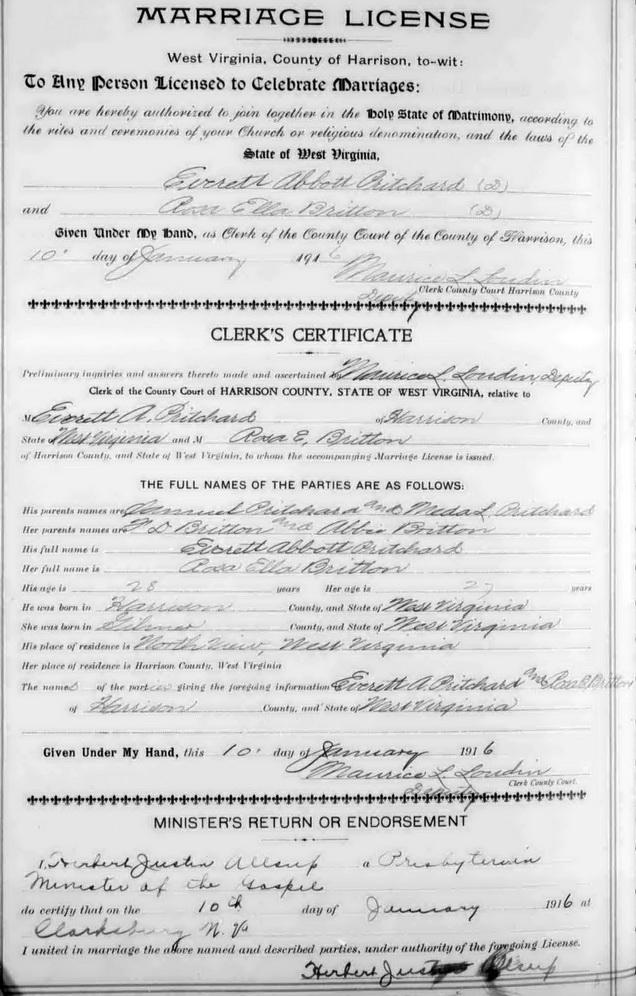 MARRIAGE LICENSE
West Virginia, County of Harrison, to-wit:
To Any Person Licensed to Celebrate Marriages:
You are hereby authorized to join together in the Holy State of Matrimony, according to
the rites and ceremonies of your Church or religious denomination, and the laws of the
State of West Virginia,
Everett Abbott Pritchard (D)
and Rosa Ella Britton (D)
Given Under My Hand, as Clerk of the County Court of the County of Harrison, this
10" day of January 1916
Maurice L. Loudin
Deputy Clerk County Court Harrison County
CLERK'S CERTIFICATE
Preliminary inquiries and answers thereto made and ascertained by Maurice L. Loudin, Deputy
Clerk of the County Court of HARRISON COUNTY, STATE OF WEST VIRGINIA, relative to
M Everett A. Pritchard of Harrison County, and
State of West Virginia and M Rosa E. Britton
of Harrison County, and State of West Virginia, to whom the accompanying Marriage License is issued.
THE FULL NAMES OF THE PARTIES ARE AS FOLLOWS:
His parents names are Samuel Pritchard and Meda L. Pritchard
Her parents names are D Britton and Abbie Britton
His full name is Everett Abbott Pritchard
Her full name is Rosa Ella Britton
His age is 28 years Her age is 27 years
He was born in Harrison County, and State of West Virginia
She was born in Gilmer County, and State of West Virginia
His place of residence is North View, West Virginia
Her place of residence is Harrison County, West Virginia
The names of the parties giving the foregoing information Everett A. Pritchard and Rosa E. Britton
of Harrison County, and State of West Virginia
Given Under My Hand, this 10" day of January 1916
Maurice L. Loudin
Clerk County Court.
Deputy
MINISTER'S RETURN OR ENDORSEMENT
I, Herbert Justin Allsup a Presbyterian
Minister of the Gospel
do certify that on the 10th day of January 1916 at
Clarksburg W. Va
I united in marriage the above named and described parties, under authority of the foregoing License.
Herbert Justin Allsup